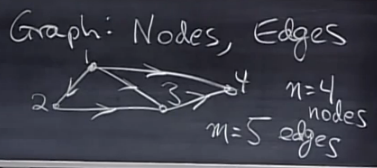 Graph: Nodes, Edges
1
4
2
3
n=4
nodes
m=5 edges